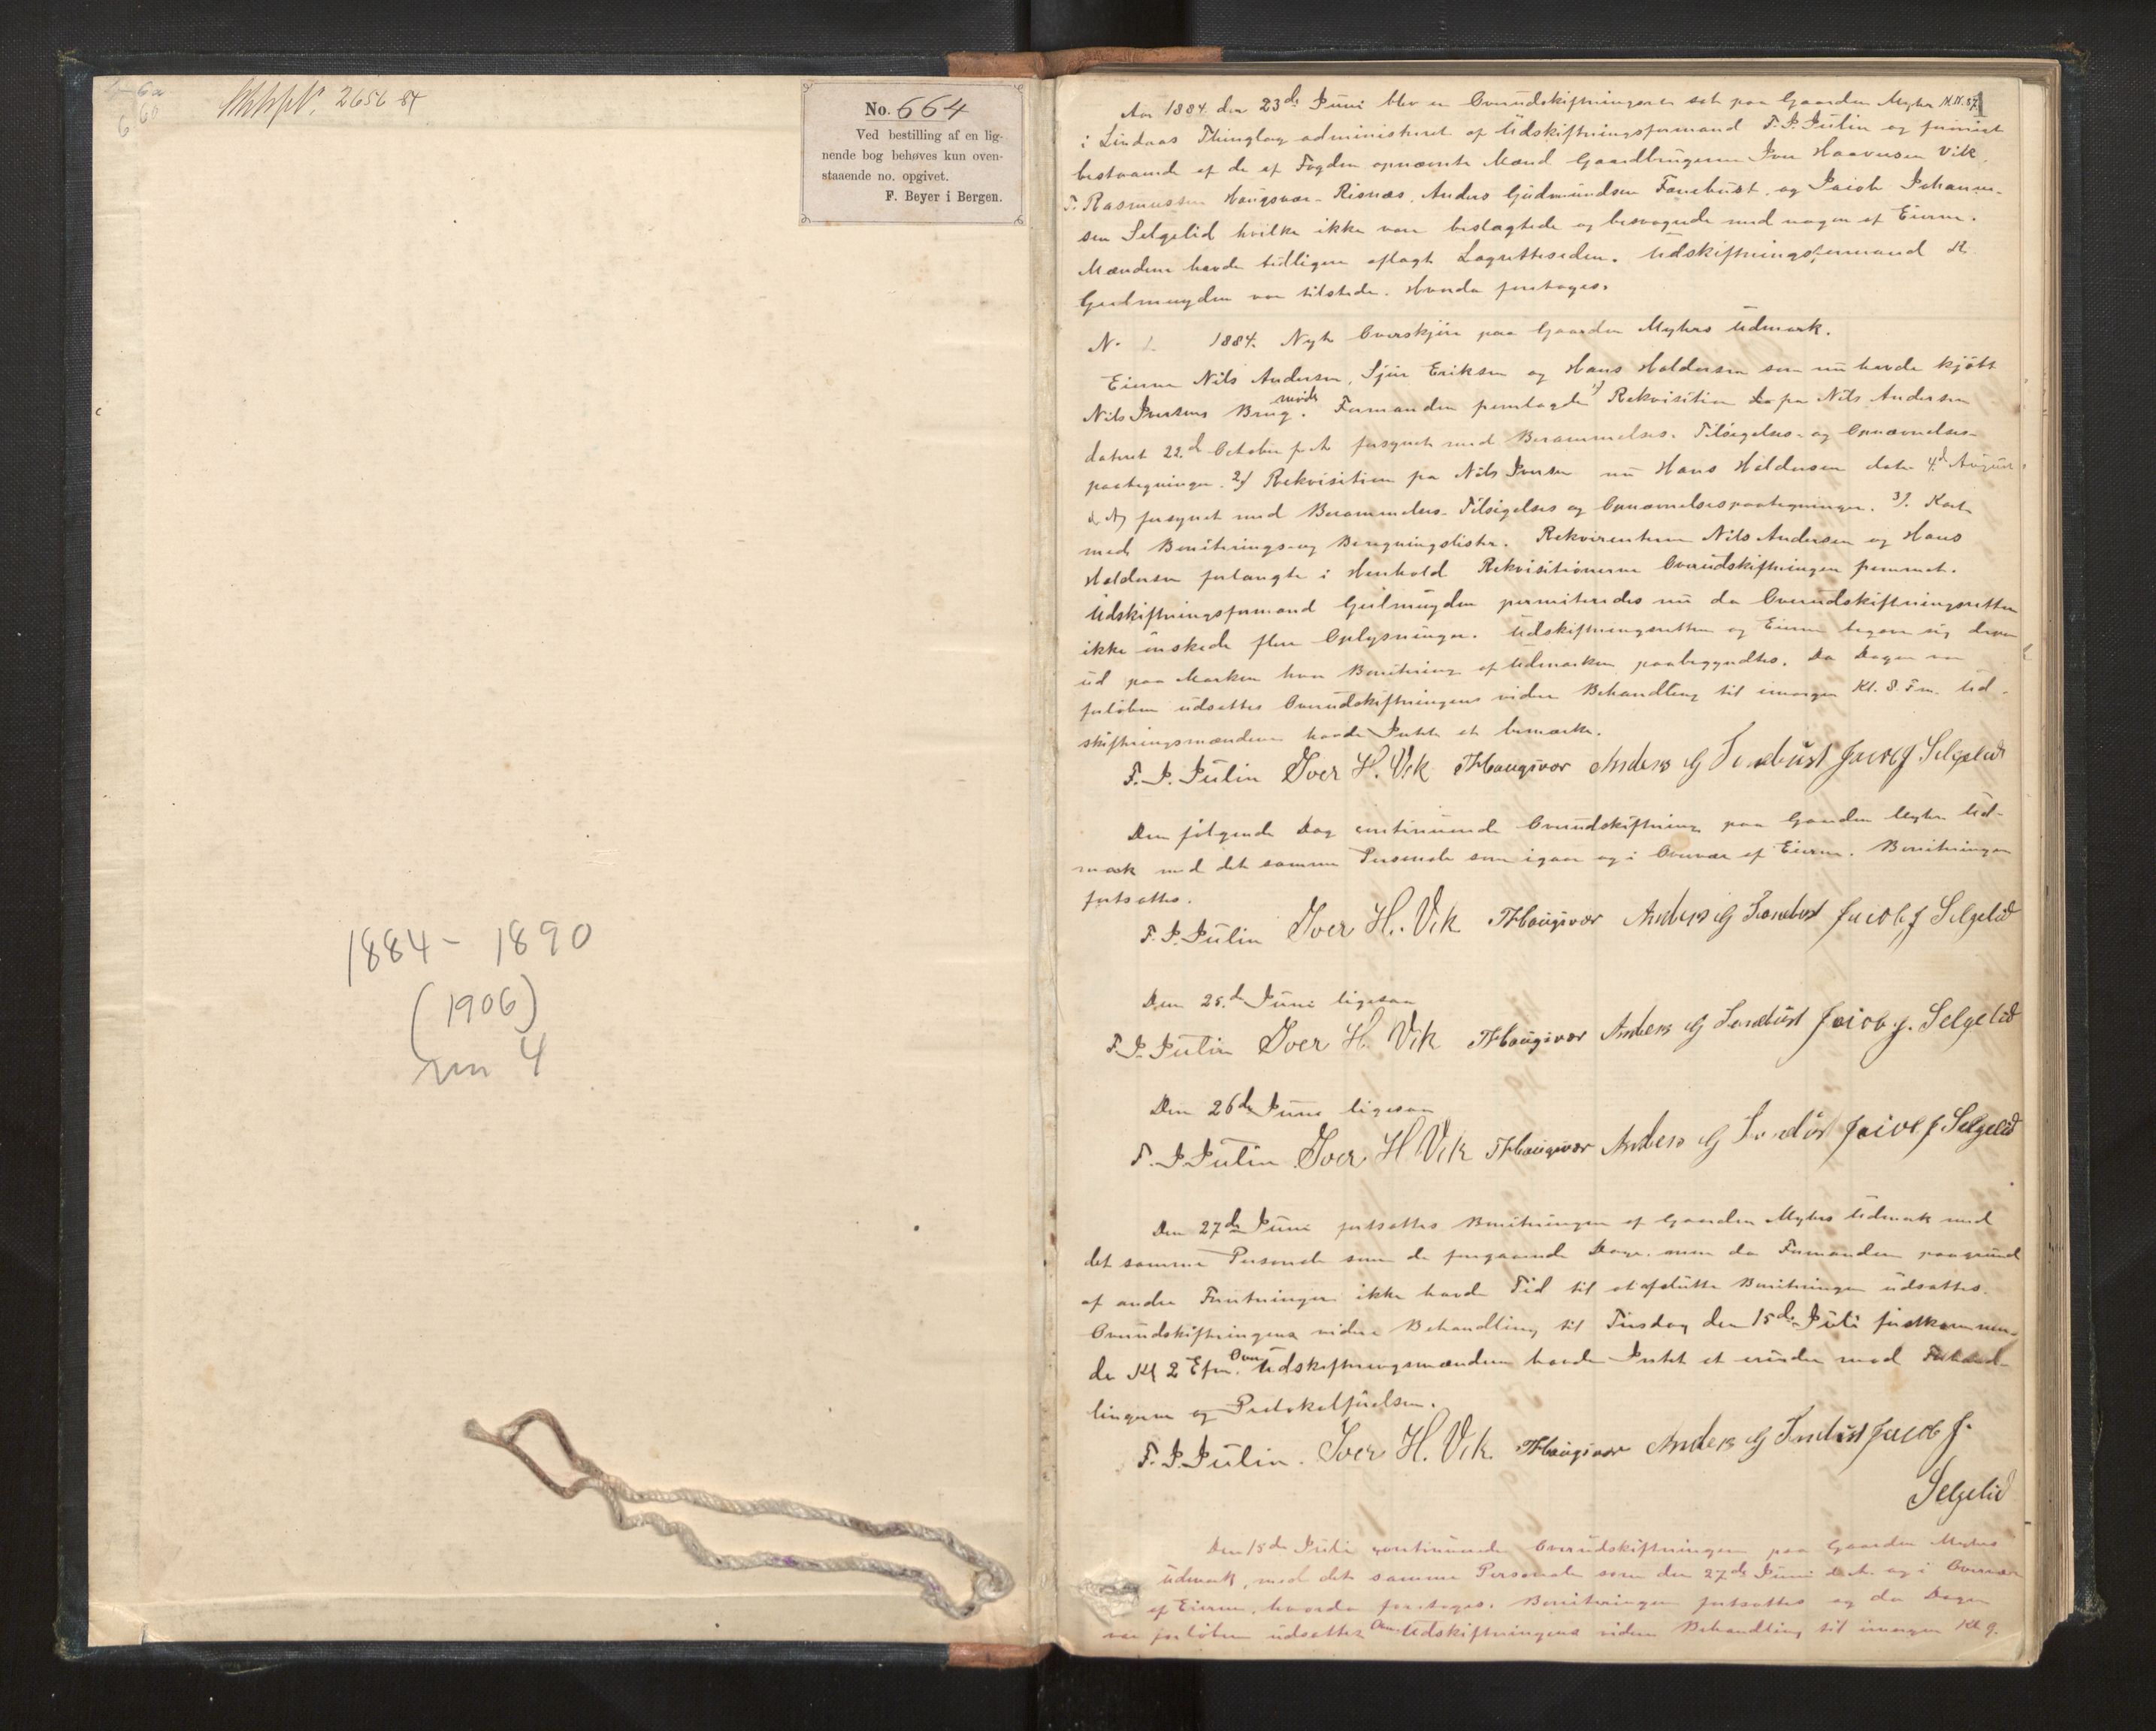 6a
60
6
2656 84
No. 664
Ved bestilling af en lig-
nende bog behøves kun oven-
staaende no. opgivet.
F. Beyer i Bergen.
1884 - 1890
(1906)
nr 4
1
Aar 1884 den 23de Juni blev en Overudskiftningsret sat paa Gaarden Myhre
i Lindaas Thinglag administreret af Udskiftningsformand F. P. Julin og forøvrigt
bestaaende af de af Fogden opnævnte Mænd Gaardbrugerne Iver Haaversen Vik,
T. Rasmussen Haugsvær-Risnæs, Anders Gudmundsen Fanebust og Jacob Johannes-
sen Selgelid hvilke ikke vare beslagtede og besvogrede med nogen af Eierne.
Mændene havde tidligere aflagt Lagretteseden. Udskiftningsformand K.
Geelmuyden var tilstede. Hvorda foretoges:
No 1 1884. Nyt Overskjøn paa Gaarden Myhres Udmark.
Eierne Nils Andersen, Sjur Eriksen og Hans Haldorsen som nu havde kjøbt
Nils Iversens Brug mødte. Formanden fremlagde 1) Rekvisition fra Nils Andersen
dateret 22de October f. A. forsynet med Berammelses- Tilsigelses- og Opnævnelses-
paategninger. 2) Rekvisition fra Nils Iversen nu Hans Haldorsen dat. 4de August
d. A. forsynet med Berammelses- Tilsigelses og Opnævnelsespaategninger. 3). Kart
med Boniterings- og Beregningslister. Rekvirenterne Nils Andersen og Hans
Haldorsen forlangte i Henhold Rekvisitionerne Overudskiftningen fremmet.
Udskiftningsformand Geelmuyden permitteredes nu da Overudskiftningsretten
ikke ønskede flere Oplysninger. Udskiftningsretten og Eierne begave sig derpaa
ud paa Marken hvor Bonitering af Udmarken paabegyndtes. Da Dagen var
forløben udsattes Overudskiftningens videre Behandling til imorgen Kl. 8. Fm. Ud-
skiftningsmændene havde Intet at bemærke.
F. P. Julin Iver H. Vik THaugsvær Anders G Fanebust Jacob J Selgelid
Den følgende Dag continuerede Overudskiftning paa Gaarden Myhre Ud-
mark med det samme Personale som igaar og i Overvær af Eierne. Boniteringen
fortsattes.
F. P. Julin Iver H. Vik THaugsvær Anders G Fanebust Jacob J Selgelid
Den 25de Juni ligesaa
F. P. Julin Iver H. Vik THaugsvær Anders G Fanebust Jacob J. Selgelid
Den 26de Juni ligesaa
F. P. Julin Iver H Vik THaugsvær Anders G Fanebust Jacob J Selgelid
Den 27de Juni fortsattes Boniteringen af Gaarden Myhres Udmark med
det samme Personale som de foregaaende Dage, men da Formanden paagrund
af andre Forretninger ikke havde Tid til at afslutte Boniteringen udsattes
Overudskiftningens videre Behandling til Tirsdag den 15de Juli førstkommen-
de Kl 2 Efm. Overudskiftningsmændene havde Intet at erindre mod Forhand-
lingerne og Protokolførelsen.
F. P. Julin. Iver H. Vik. THaugsvær Anders G Fanebust Jacob J.
Selgelid
Den 15de Juli continuerede Overudskiftningen paa Gaarden Myhres
Udmark, med det samme Personale som den 27de Juni d. A. og i Overvær
af Eierne, hvorda foretoges: Boniteringen fortsattes og da Dagen
var forløben udsattes Overudskiftningens videre Behandling til imorgen Kl 9.